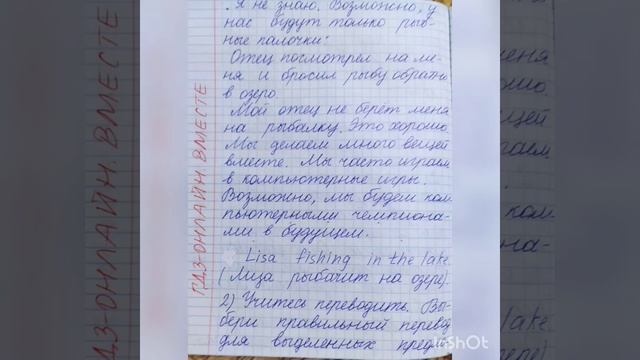 . Я не знаю. Возможно, у
нас будут только рыб-
ные палочки.
Отец посмотрел на ме-
ня и бросил рыбу обратно
в озеро.
Мой отец не берёт меня
на рыбалку. Это хорошо.
Мы делаем много вещей
вместе. Мы часто играем
в компьютерные игры.
Возможно, мы будем ком
пьютерными чемпиона-
ми в будущем.
Lisa fishing in the lake.
(Лиза рыбачит на озере).
2) Учитесь переводить. Вы-
бери правильный перевод
для выделенных предло
ГДЗ-ОНЛАЙН ВМЕСТЕ